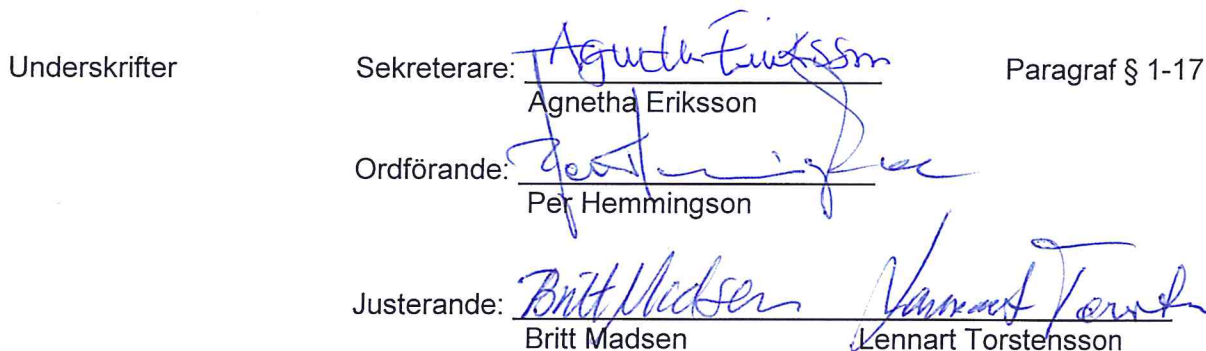 Underskrifter Sekreterare: Agnetha Eriksson Paragraf § 1-17
Agnetha Eriksson
Ordförande: Per Hemmingson
Per Hemmingson
Justerande: Britt Madsen Lennart Torstensson
Britt Madsen Lennart Torstensson